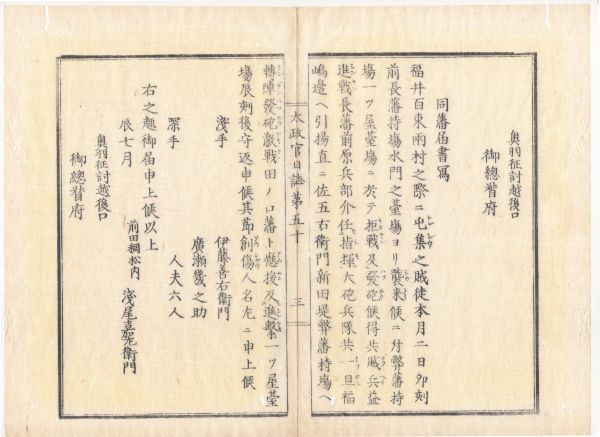 奥羽征討越後口
御總督府
同藩届書寫
福井百束兩村之際ニ屯集之賊徒本月二日卯刻
前長藩持場水門之臺場ヨリ襲来候ニ付弊藩持
場一ツ屋臺場ニ於テ拒戰及發砲候得共賊兵益
進戰長藩前原兵部介任指揮大砲兵隊共一旦福
嶋邉ヘ引揚直ニ佐五右衛門新田堤弊藩持場ヘ
太政官日誌第五十
三
轉陣發砲激戰田ノ口藩ト應援及進擊一ツ屋臺
場辰刻後守返申候其節創傷人名左ニ申上候
淺手
伊藤善右衛門
廣瀬幾之助
深手
人夫六人
右之趣御届申上候以上
辰七月
前田稠松内
淺尾喜左衛門
奥羽征討越後口
御總督府